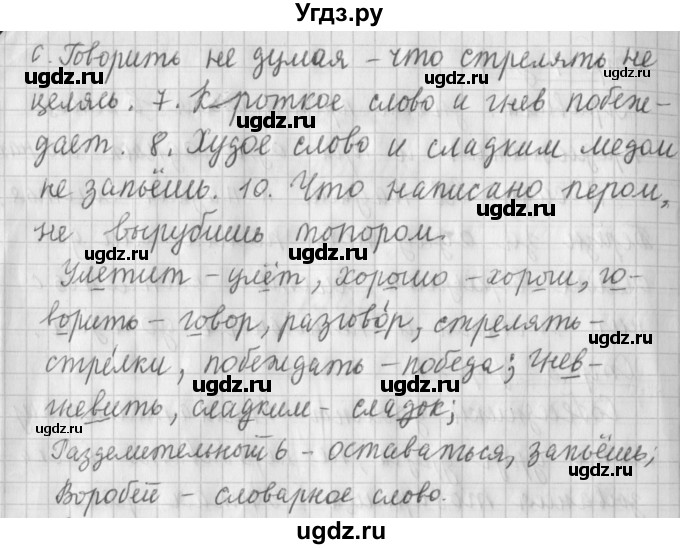 Угдз.ру
6. Говорить не думая – что стрелять не
целясь. 7. Кроткое слово и гнев побеж-
дает. 8. Худое слово и сладким медом
не запьёшь. 10. Что написано пером,
не вырубишь топором.
Улетит – улёт, хорошо – хорош, го-
ворить – говор, разговор, стрелять –
стрелки, побеждать – победа; гнев –
гневить, сладким – сладок;
Разделительный ь – оставаться, запьёшь;
Воробей – словарное слово.
ugdz.ru
ugdz.ru
ugdz.ru
ugdz.ru
ugdz.ru
ugdz.ru
ugdz.ru
ugdz.ru
ugdz.ru
ugdz.ru
ugdz.ru
ugdz.ru
ugdz.ru